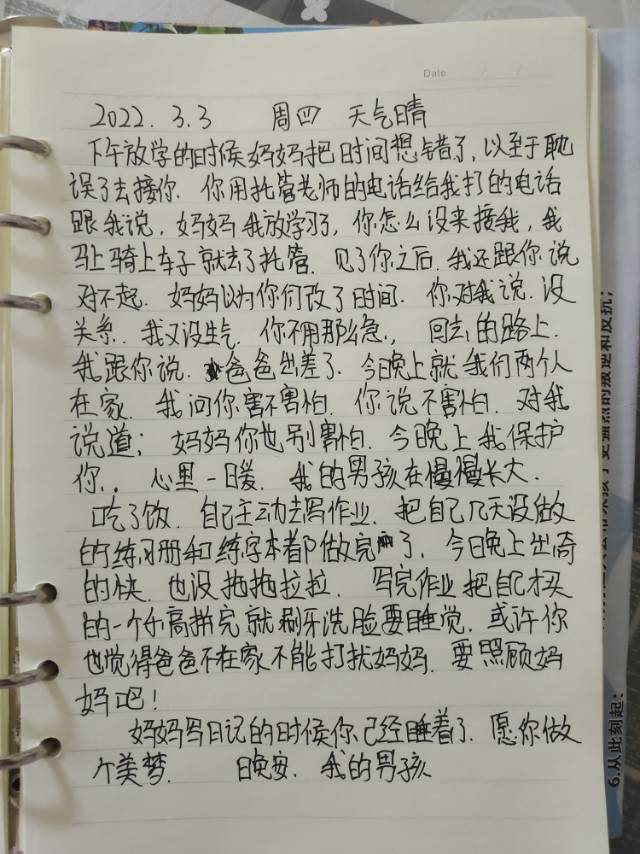 Date / /
2022.3.3 周四 天气晴
下午放学的时候妈妈把时间想错了,以至于耽
误了去接你.你用托管老师的电话给我打的电话
跟我说,妈妈我放学了,你怎么没来接我,我
马上骑上车子就去了托管.见了你之后.我还跟你说
对不起.妈妈以为你们改了时间.你对我说.没
关系.我又没生气.你不用那么急.,回去的路上.
我跟你说.爸爸出差了.今日晚上就我们两个人
在家.我问你害不害怕.你说不害怕.对我
说道;妈妈你也别害怕.今日晚上我保护
你..心里一暖.我的男孩在慢慢长大.
吃了饭.自己主动去写作业.把自己几天没做
的练习册和练字本都做完了.今日晚上出奇
的快.也没拖拖拉拉.写完作业把自己才买
的一个乐高拼完就刷牙洗脸要睡觉.或许你
也觉得爸爸不在家不能打扰妈妈.要照顾妈
妈吧!
妈妈写日记的时候你已经睡着了.愿你做
个美梦.晚安.我的男孩
更强烈的叛逆和反抗;
6.从此刻起: